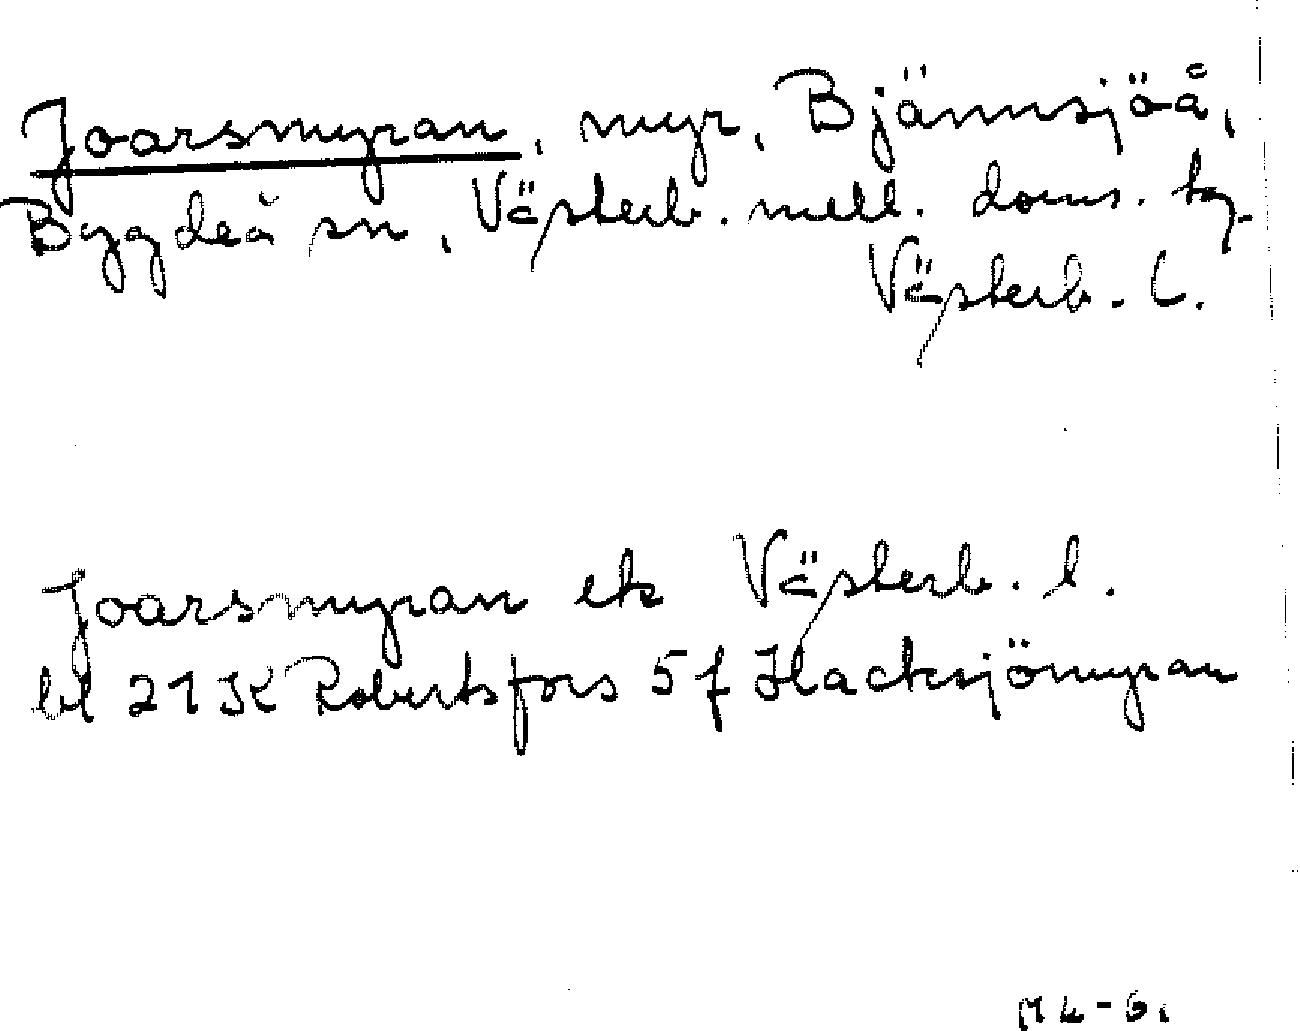 Joarsmyran, myr, Bjännsjöå,
Bygdeå sn, Västerb. mell. doms. tg.
Västerb. l.
Joarsmyran ek Västerb. l.
bl 21K Robertsfors 5f Hacksjömyran